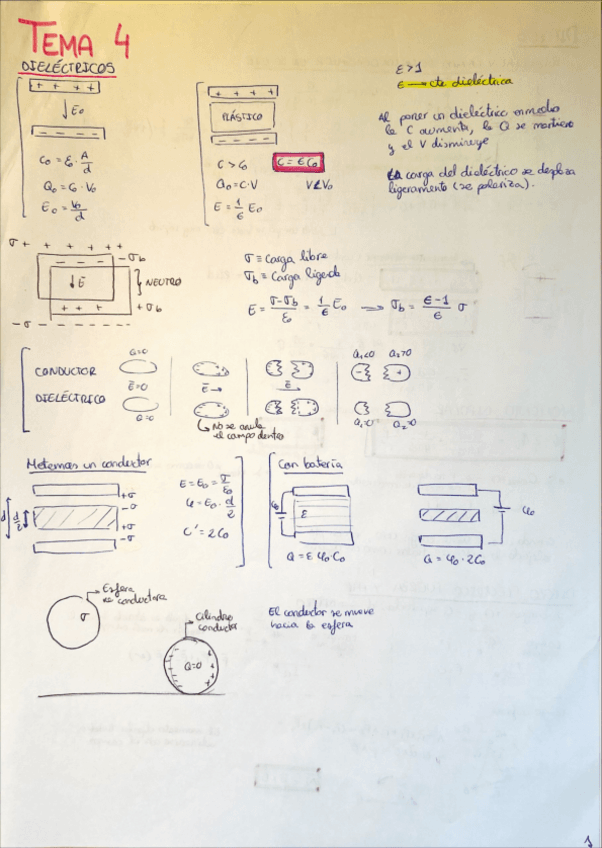 TEMA 4
DIELÉCTRICOS
+ + + +
↓E₀
- - - -
C₀ = ε₀ · A/d
Q₀ = C₀ · V₀
E₀ = V₀/d
+ + + +
PLÁSTICO
- - - -
C > C₀
C = εC₀
Q₀ = C · V
V < V₀
E = 1/ε E₀
ε > 1
ε → cte dieléctrica
Al poner un dieléctrico en medio
la C aumenta, la Q se mantiene
y el V disminuye
La carga del dieléctrico se desplaza
ligeramente (se polariza).
σ + + + + + +
- - - - -σb
↓E
NEUTRO
+ + + +σb
-σ - - - - - -
σ ≡ Carga libre
σb ≡ Carga ligada
E = (σ-σb)/ε₀ = 1/ε E₀ → σb = (ε-1)/ε σ
CONDUCTOR
DIELÉCTRICO
Q=0
E=0
Q=0
E→
E→
No se anula
el campo dentro
Q₁<0 Q₂>0
- +
Q₁=0 Q₂=0
Metemos un conductor
+σ
-σ
+σ
-σ
d
d/2
E = E₀ = σ/ε₀
φ = E₀ · d/2
C' = 2C₀
Con batería
φ₀
ε
Q = ε φ₀ · C₀
φ₀
Q = φ₀ · 2C₀
Esfera
conductora
σ
Cilindro
conductor
Q=0
El conductor se mueve
hacia la esfera
1